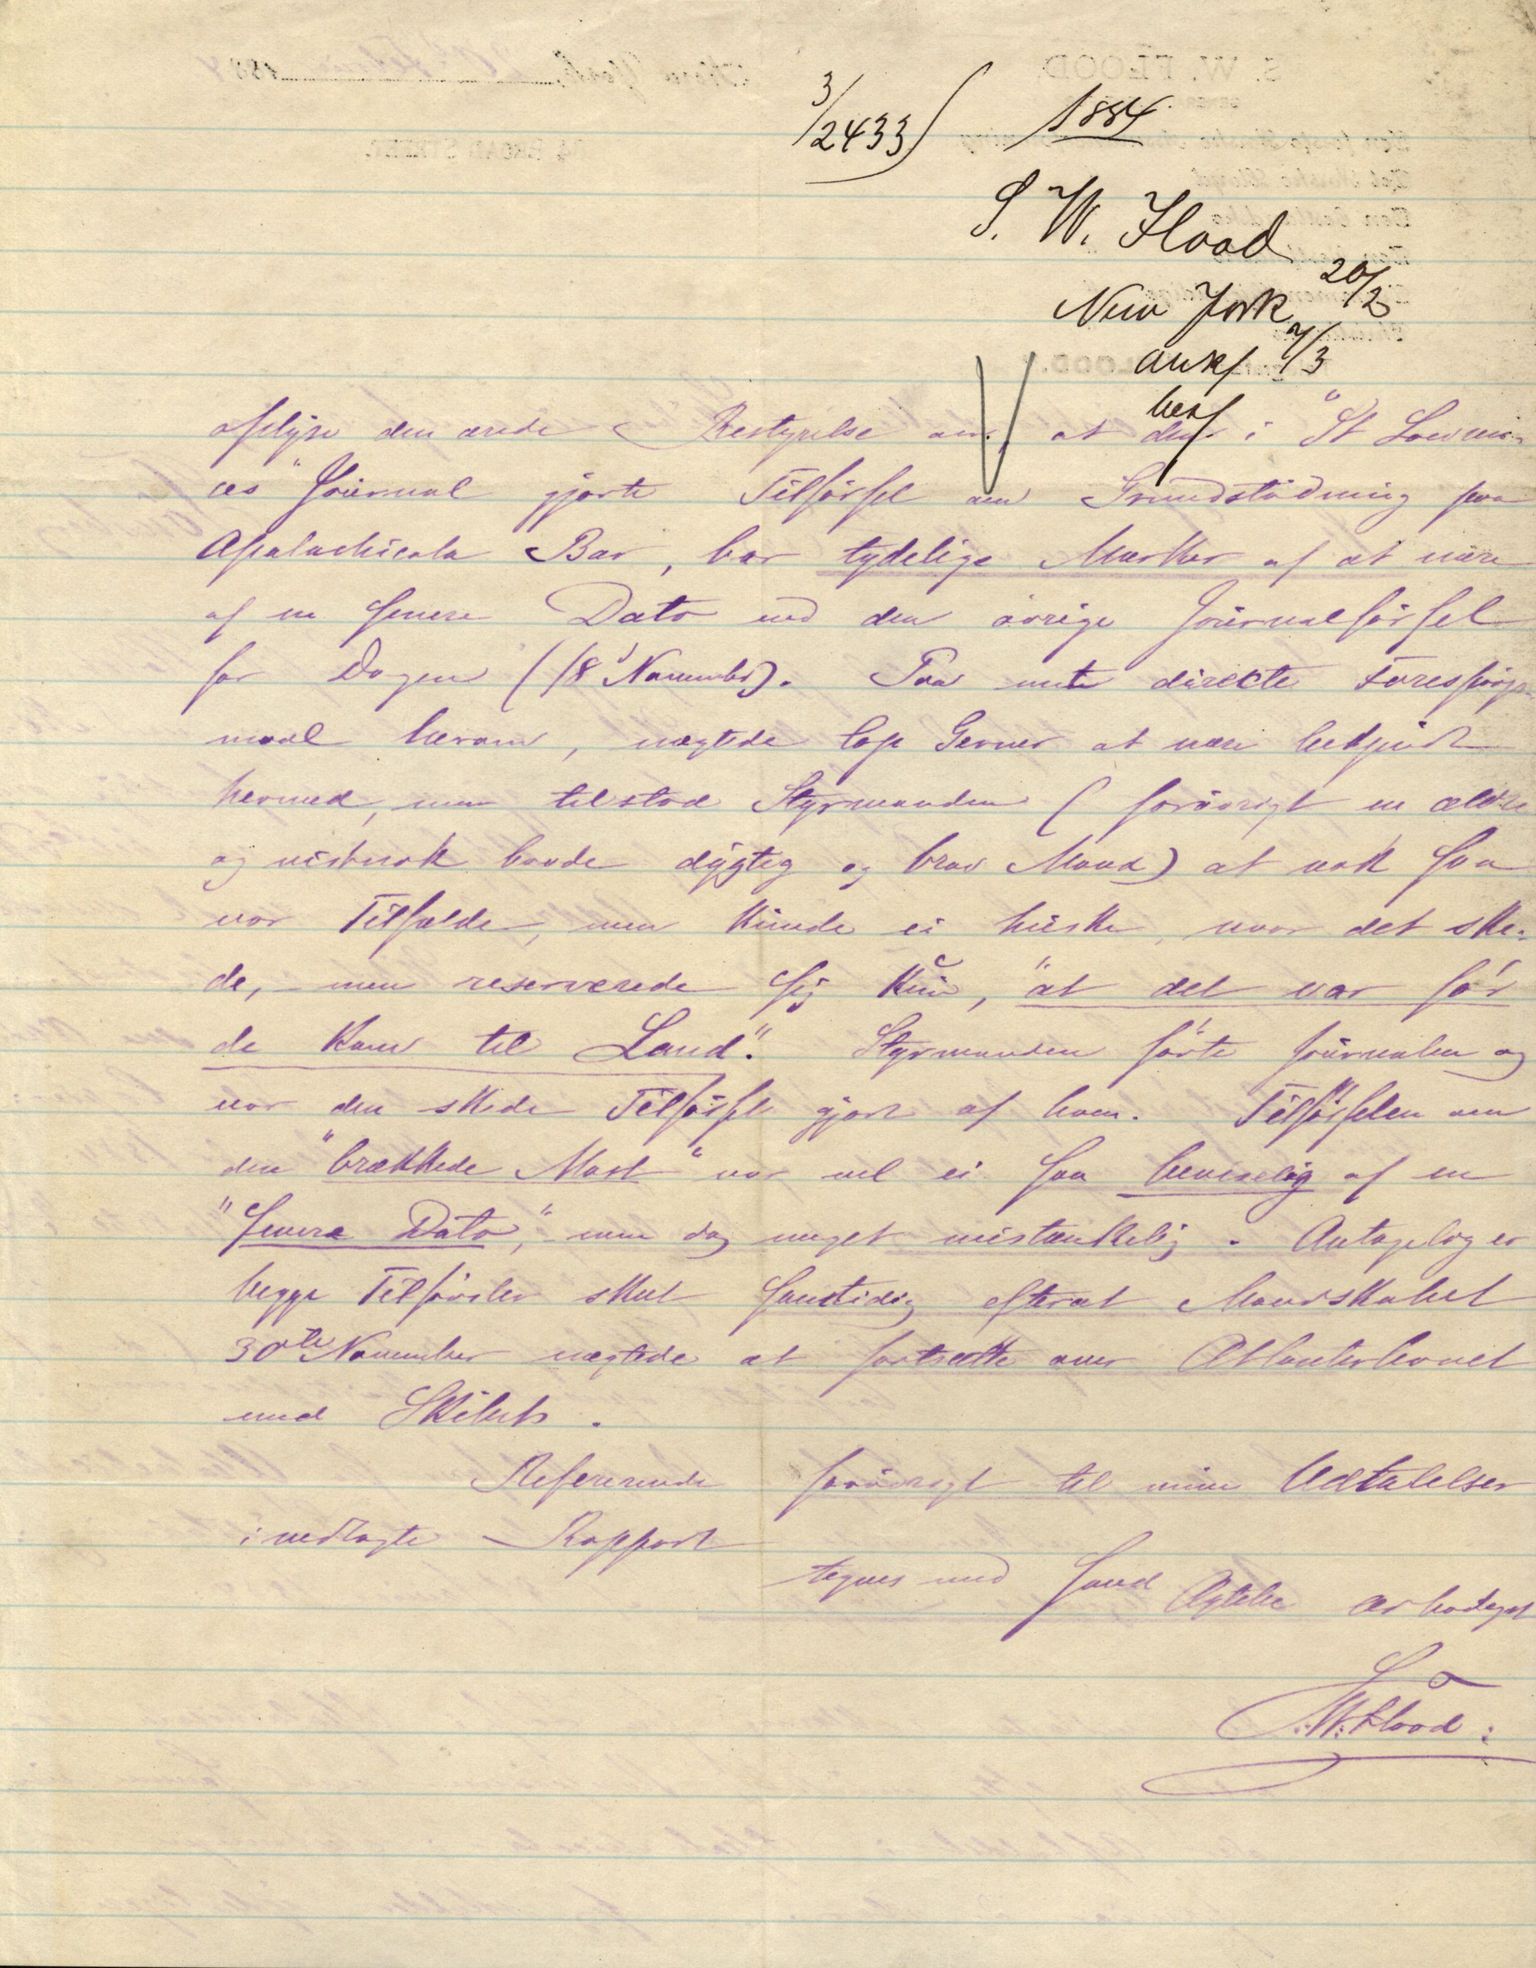 3/2433 1884
S. W. Flood
New York 20/2
ank 7/3
besv
oplyse den ærede Bestyrelse om, at den i "St Lawren-
ces" Journal gjorte Tilførsel om Grundstødning paa
Apalachicola Bar, bar tydelige Mærker af at være
af en senere Dato end den øvrige Journalførsel
for Dagen (18' November). Paa mit direkte Forespørgs-
maal herom, nægtede Cap Gerner at være bekjendt
hermed, men tilstod Styrmanden (forøvrigt en ældre
og vistnok baade dygtig og brav Mand) at nok saa
var Tilfælde, men kunde ei huske, naar det ske-
de, - men reserverede sig kun, "at det var før
de kom til Land". Styrmanden førte Journalen og
var den skede Tilførsel gjort af ham. Tilførselen om
den "brækkede Mast" var vel ei saa beviselig af en
"senere Dato", men dog meget mistænkelig. Antagelig er
begge Tilførsler skeet samtidig efterat Mandskabet
30te November nægtede at fortsætte over Atlanterhavet
med Skibet.
Refererende forøvrigt til mine Udtalelser
i vedlagte Rapport
tegnes med sand Agtelse ærbødigst
S.W. Flood